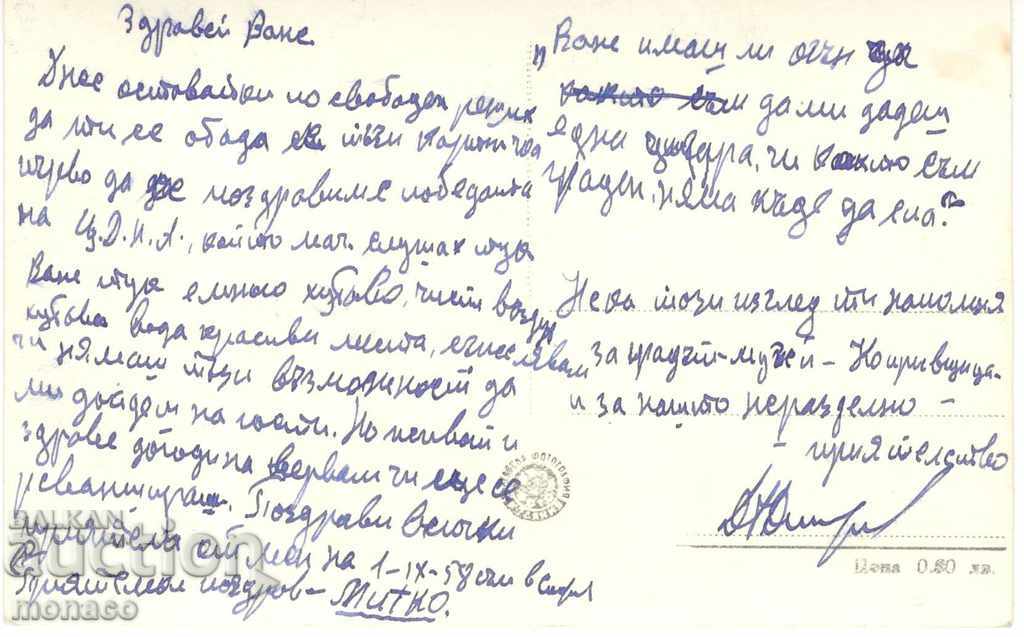 Здравей Ване.
Днес оставайки по свободен решух
да ти се обада тъзи картичка
първо да поздравиме победата
на Ц.Д.Н.А., който мач слушах тук
Ване тук е много хубаво, чист въздух
хубава вода красиви места,
чи нямаш тъзи възможност да
ми дойдеш на гости. Но живай и
здраве догодина вервам чи ще се
реваншираш. Поздрави всички
приятели от мен на 1-IX-58 съм в София
Приятелски поздров - Митко.
"Ване имаш ли огън да
както съм да ми дадеш
една цигара, чи както съм
гладен, няма къде да спа?"
Нека този изглед ти напомня
за градът-музей - Копривщица -
и за нашто неразделно -
- приятелство
Цена 0.80 лв.
BALKAN
auction
monaco